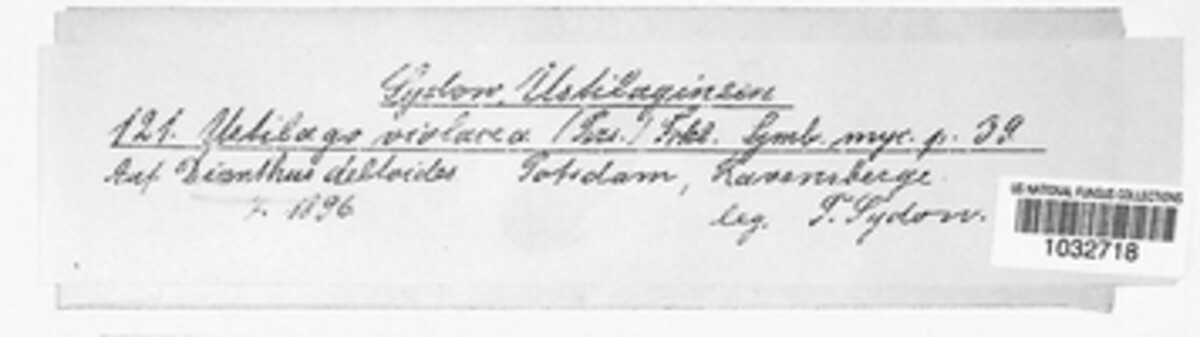 Sydow, Ustilagineen
121. Ustilago violacea (Pers.) Fckl. Symb. myc. p. 39
Auf Dianthus deltoides Potsdam, Ravensberge
7. 1896
leg. P. Sydow.
US NATIONAL FUNGUS COLLECTIONS
1032718